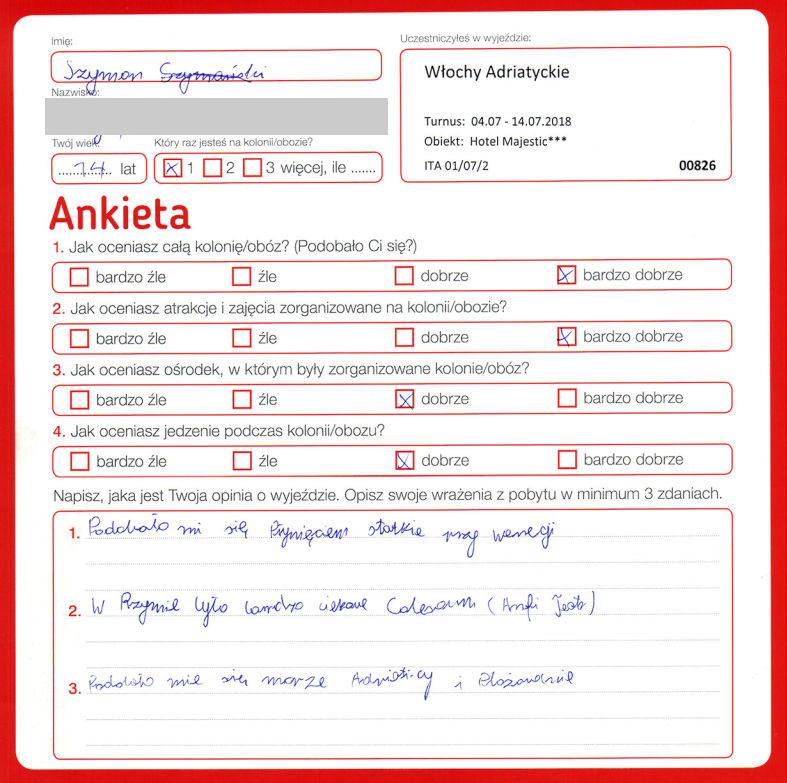 Imię:
Szymon Szymański
Nazwisko:
Twój wiek:
14 lat
Który raz jesteś na kolonii/obozie?
x 1 2 3 więcej, ile .......
Uczestniczyłeś w wyjeździe:
Włochy Adriatyckie
Turnus: 04.07 - 14.07.2018
Obiekt: Hotel Majestic***
ITA 01/07/2 00826
Ankieta
1. Jak oceniasz całą kolonię/obóz? (Podobało Ci się?)
bardzo źle źle dobrze x bardzo dobrze
2. Jak oceniasz atrakcje i zajęcia zorganizowane na kolonii/obozie?
bardzo źle źle dobrze x bardzo dobrze
3. Jak oceniasz ośrodek, w którym były zorganizowane kolonie/obóz?
bardzo źle źle x dobrze bardzo dobrze
4. Jak oceniasz jedzenie podczas kolonii/obozu?
bardzo źle źle x dobrze bardzo dobrze
Napisz, jaka jest Twoja opinia o wyjeździe. Opisz swoje wrażenia z pobytu w minimum 3 zdaniach.
1. Podobało mi się statkie
2. W Rzymie było bardzo ciekawe Coleseum (Amfi Teatr)
3. Podobało mie się morze i Plażowanie